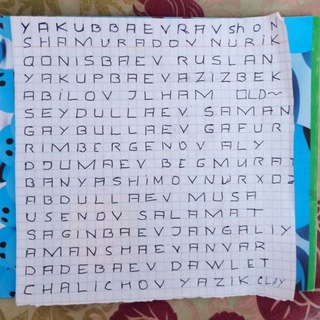 YAKUBBAEVRAVShON
SHAMURADOV NURIK
QONISBAEV RUSLAN
YAKUPBAEVAZIZBEK
ABILOV ILHAM OLD~
SEYDULLAEV SAMAN
GAYBULLAEV GAFUR
RIMBERGENOV ALY
DJUMAEV BEGMURAT
BANYASHIMOVNURXOJ
ABDULLAEV MUSA
USENOV SALAMAT
SAGINBAEVJANGALIY
AMANSHAEVANVAR
DADEBAEV DAWLET
CHALICHOV YAZIK CLAY